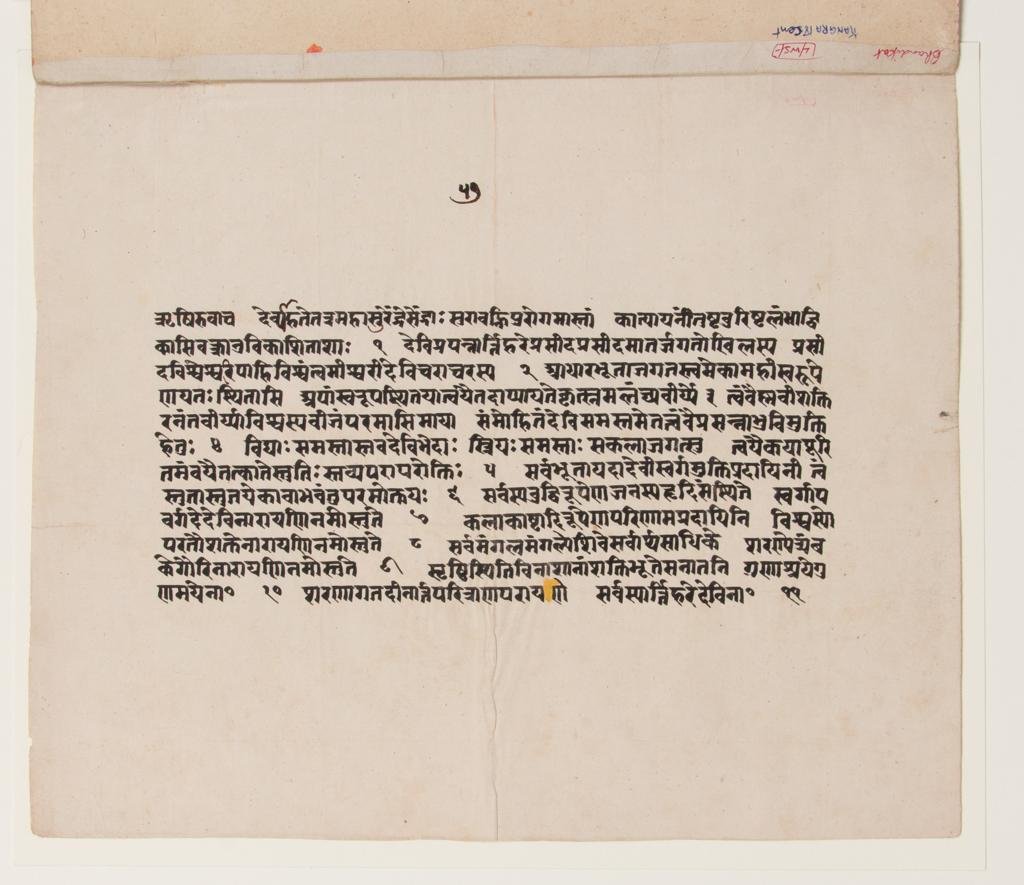 KANGRA 18 Cent
५७
ऋषिरुवाच देव्याहतेतत्रमहासुरेंद्रेसेंद्राः सुरावह्निपुरोगमास्तां कात्यायनींतुष्टुवुरिष्टलंभाद्वि
कासिवक्त्राब्जविकाशिताशाः १ देविप्रपन्नार्त्तिहरेप्रसीदप्रसीदमातर्जगतोखिलस्य प्रसी
दविश्वेश्वरिपाहिविश्वंत्वमीश्वरीदेविचराचरस्य २ आधारभूताजगतस्त्वमेकामहीस्वरूपे
णयतःस्थितासि अपांस्वरूपस्थितयात्वयैतदाप्यायतेकृत्स्नमलंघ्यवीर्ये ३ त्वंवैस्नवीशक्ति
रनंतवीर्याविश्वस्यबीजंपरमासिमाया संमोहितंदेविसमस्तमेतत्त्वंवैप्रसन्नाभुविमुक्ति
हेतुः ४ विद्याःसमस्तास्तवदेविभेदाः स्त्रियःसमस्ताः सकलाजगत्सु त्वयैकयापूरि
तमंबयैतत्कातेस्तुतिःस्तव्यपरापरोक्तिः ५ सर्वभूतायदादेवीस्वर्गमुक्तिप्रदायिनी त्वं
स्तुतास्तुतयेकावाभवंतुपरमोक्तयः ६ सर्वस्यबुद्धिरूपेणजनस्यहृदिसंस्थिते स्वर्गाप
वर्गदेदेविनारायणिनमोस्तुते ७ कलाकाष्ठादिरूपेणपरिणामप्रदायिनि विश्वस्यो
परतौशक्तेनारायणिनमोस्तुते ८ सर्वमंगलमंगल्येशिवेसर्वार्थसाधिके शरण्येत्र्यंब
केगौरिनारायणिनमोस्तुते ९ सृष्टिस्थितिविनाशानांशक्तिभूतेसनातनि गुणाश्रयेगु
णमयेना॰ १० शरणागतदीनार्त्तपरित्राणपरायणे सर्वस्यार्त्तिहरेदेविना॰ ११